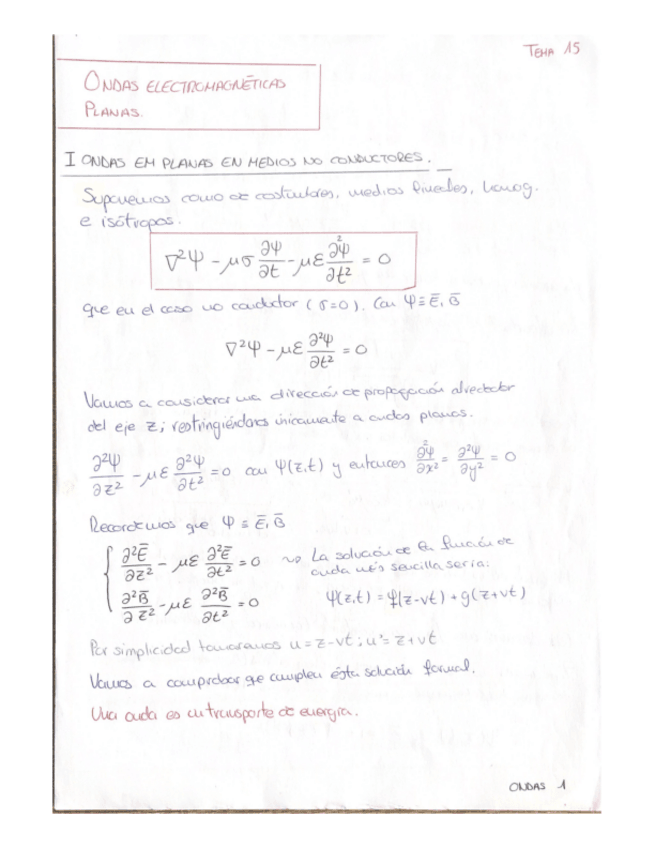 TEMA 15
ONDAS ELECTROMAGNÉTICAS
PLANAS.
I ONDAS EM PLANAS EN MEDIOS NO CONDUCTORES.
Suponemos como de costumbre, medios lineales, homog.
e isótropos.
∇²Ψ - μσ ∂Ψ/∂t - με ∂²Ψ/∂t² = 0
que en el caso no conductor (σ=0). Con Ψ ≡ E̅, B̅
∇²Ψ - με ∂²Ψ/∂t² = 0
Vamos a considerar una dirección de propagación alrededor
del eje z; restringiéndonos únicamente a ondas planas.
∂²Ψ/∂z² - με ∂²Ψ/∂t² = 0 con Ψ(z,t) y entonces ∂²Ψ/∂x² = ∂²Ψ/∂y² = 0
Recordemos que Ψ ≡ E̅, B̅
∂²E̅/∂z² - με ∂²E̅/∂t² = 0 ⇝ La solución de la función de
onda más sencilla sería:
∂²B̅/∂z² - με ∂²B̅/∂t² = 0 Ψ(z,t) = f(z-vt) + g(z+vt)
Por simplicidad tomaremos u = z-vt ; u' = z+vt
Vamos a comprobar que cumplen ésta solución formal.
Una onda es un transporte de energía.
ONDAS 1